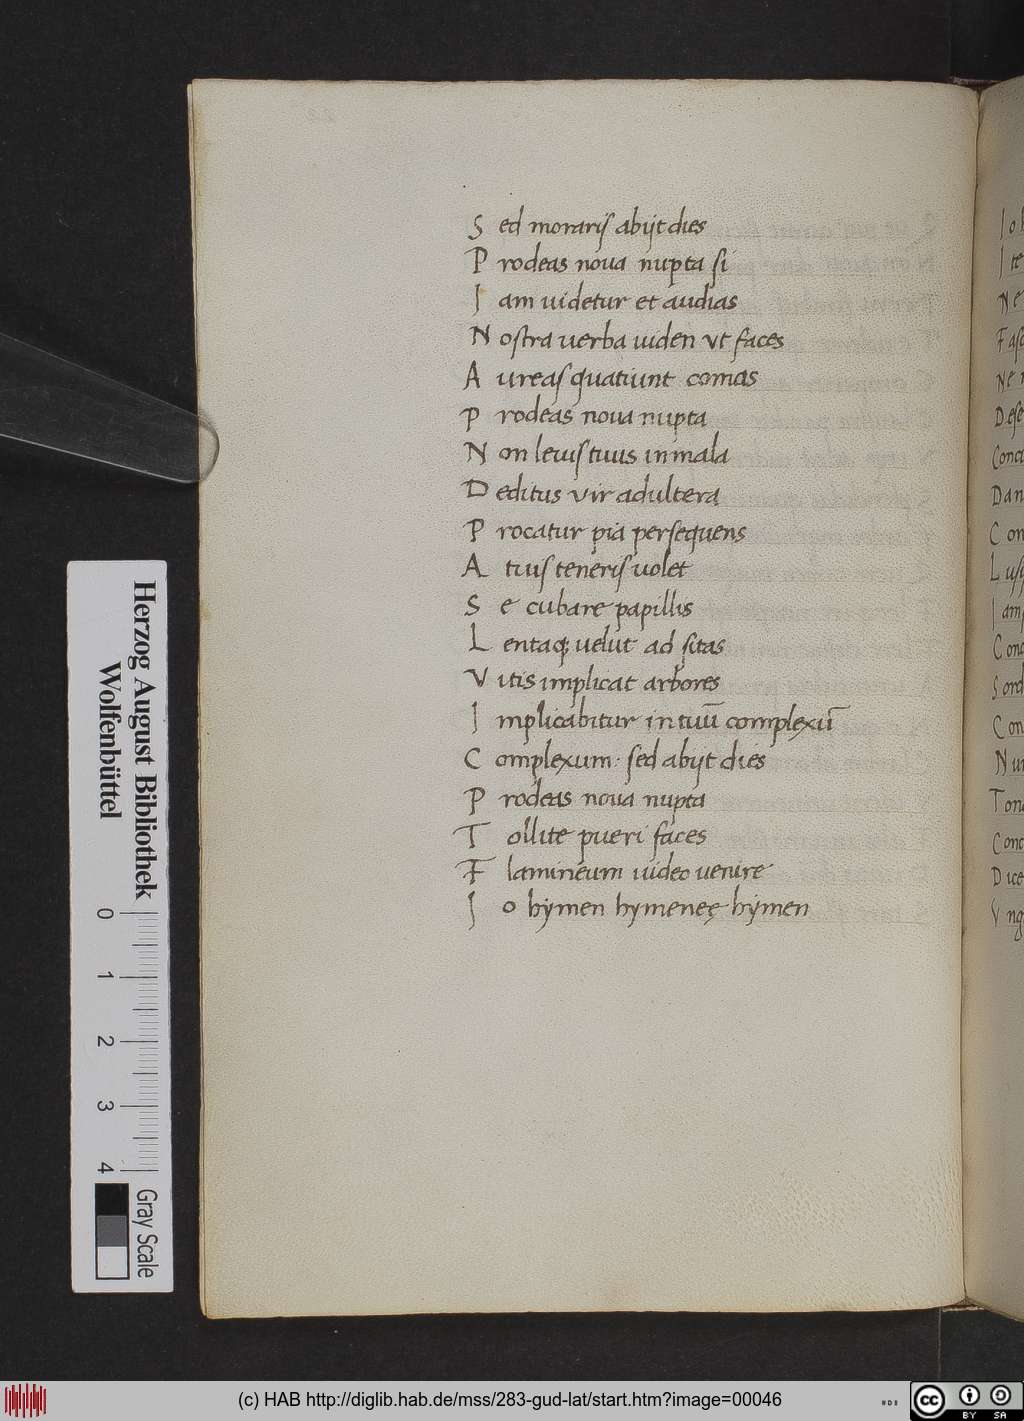 S ed moraris abijt dies
P rodeas noua nupta si
I am uidetur et audias
N ostra uerba uiden vt faces
A ureas quatiunt comas
P rodeas noua nupta
N on leuis tuus in mala
D editus vir adultera
P rocatur pia persequens
A tuis teneris uolet
S e cubare papillis
L entaq; uelut ad sitas
V itis implicat arbores
I mplicabitur in tuū complexū
C omplexum: sed abijt dies
P rodeas noua nupta
T ollite pueri faces
F lamineum uideo uenire
I o hÿmen hymeneę hÿmen
I o
I te
N e
F asc
N e
D ese
Conc
D an
C on
L us
I am
C onc
S ord
C on
N u
T on
Conc
D ice
V ng
Herzog August Bibliothek
Wolfenbüttel
0 1 2 3 4
Gray Scale
(c) HAB http://diglib.hab.de/mss/283-gud-lat/start.htm?image=00046
cc BY SA